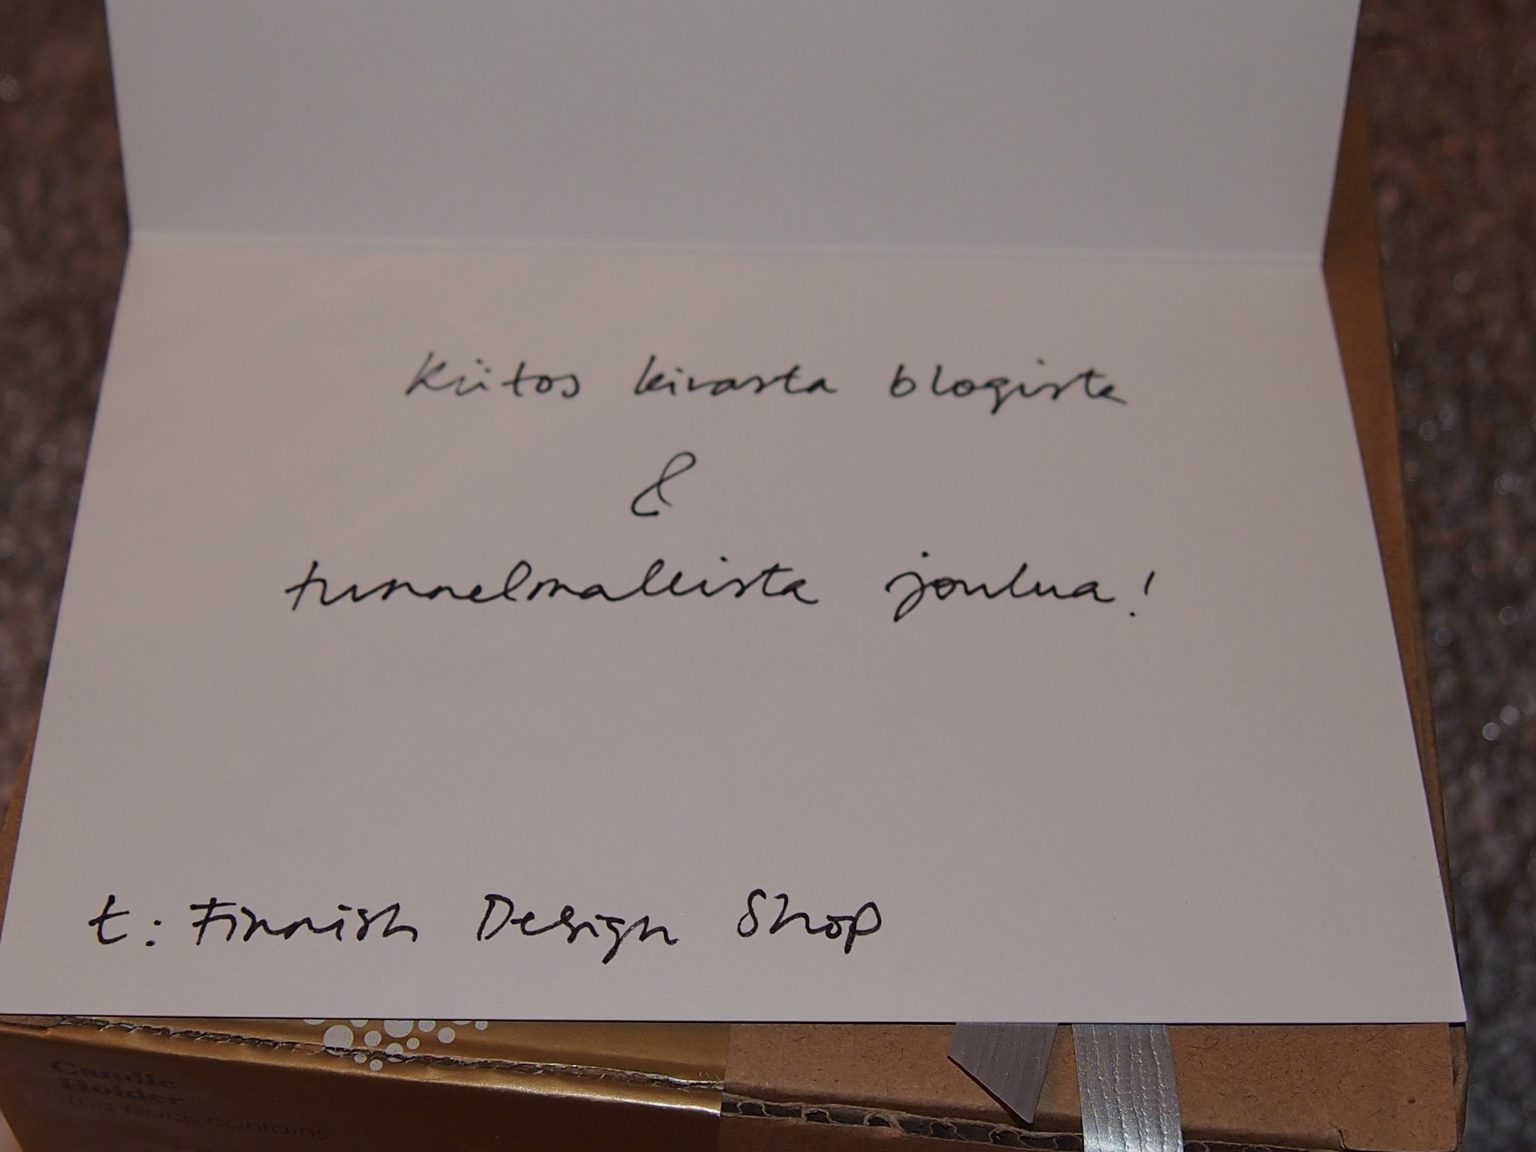 Kiitos kivasta blogista
&
tunnelmallista joulua!
t: Finnish Design Shop
Candle
Holder
This pack contains